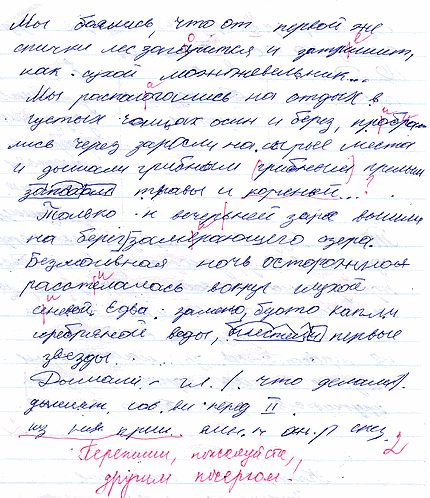 Мы боялись, что от первой же
спички лес загорится и затрещит,
как сухой можжевельник...
Мы располагались на отдых в
густых чащах осин и берез, пробира
лись через заросли на сырые места
и дышали грибным (грибным) прелым
запахом травы и корней...?
Только к вечерней заре вышли
на берег замирающего озера.
Безмолвная ночь осторожно
рассти лалась вокруг глухой
синевой. Едва заметно, будто капли
серебряной воды, блестели первые
звезды.
Дышали - гл. /. что делали)
дышат, сов. ви перед II
из них
2
Перепиши, пожалуйста,
другим почерком!